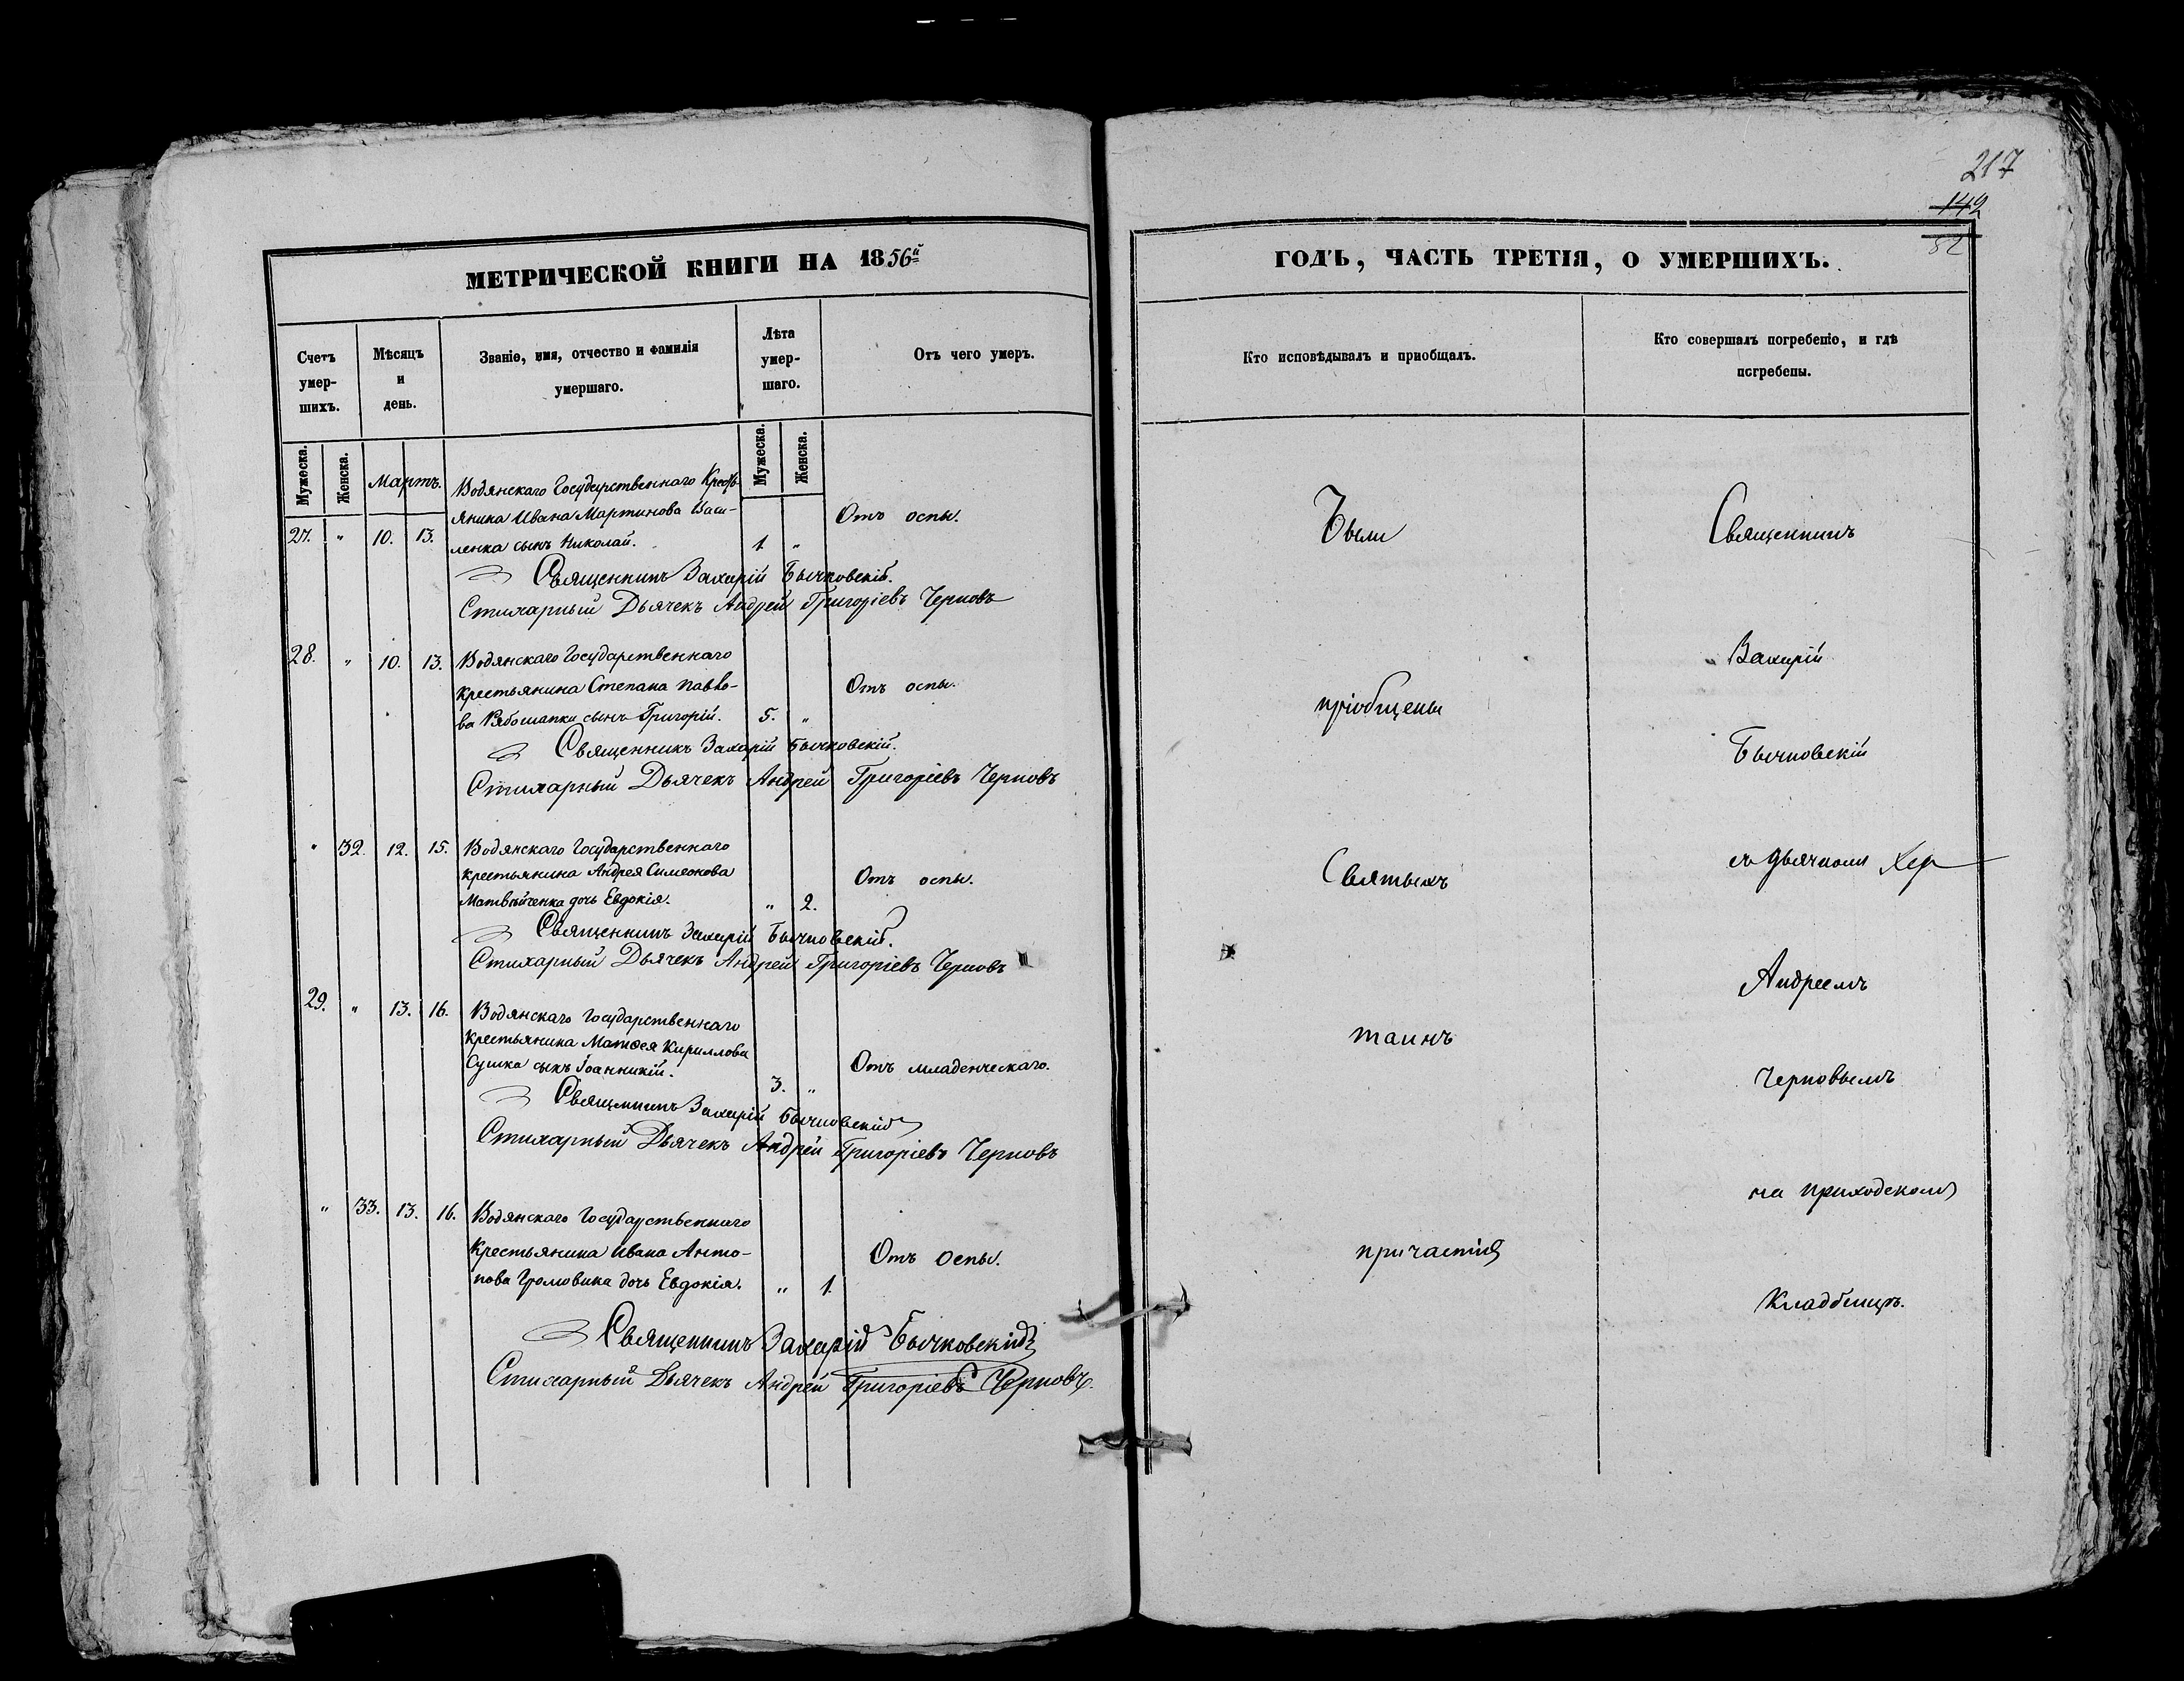 217
142
82
МЕТРИЧЕСКОЙ КНИГИ НА 1856й
Счетъ умер- шихъ.
Мѣсяцъ и день.
Званіе, имя, отчество и фамилія умершаго.
Лѣта умер- шаго.
Отъ чего умеръ.
Мужеска. Женска.
Мартъ.
Мужеска. Женска.
Водянскаго Государственнаго Кресть-
янина Ивана Мартинова Васи- Отъ оспы.
27. " 10. 13. ленка сынъ Николай. 1. "
Священникъ Захарій Бычковскій.
Стихарный Дьячекъ Андрей Григоріевъ Черновъ
28. " 10. 13. Водянскаго Государственнаго
крестьянина Степана Павло- Отъ оспы.
ва Рябошапки сынъ Григорій. 5. "
Священникъ Захарій Бычковскій.
Стихарный Дьячекъ Андрей Григоріевъ Черновъ
" 32. 12. 15. Водянскаго Государственнаго
крестьянина Андрея Симеонова Отъ оспы.
Матвѣйченка дочь Евдокія. " 2.
Священникъ Захарій Бычковскій.
Стихарный Дьячекъ Андрей Григоріевъ Черновъ
29. " 13. 16. Водянскаго Государственнаго
крестьянина Матѳея Кириллова
Сушка сынъ Іоанникій. 3. " Отъ младенческаго.
Священникъ Захарій Бычковскій
Стихарный Дьячекъ Андрей Григоріевъ Черновъ
" 33. 13. 16. Водянскаго Государственнаго
крестьянина Ивана Анто- Отъ оспы.
нова Громовика дочь Евдокія. " 1.
Священникъ Захарій Бычковскій
Стихарный Дьячекъ Андрей Григоріевъ Черновъ.
ГОДЪ, ЧАСТЬ ТРЕТІЯ, О УМЕРШИХЪ.
Кто исповѣдывалъ и пріобщалъ.
Кто совершалъ погребеніе, и гдѣ
погребены.
Были
пріобщены
Святыхъ
таинъ
причастія
Священникъ
Захарій
Бычковскій
съ дьячкомъ
Андреемъ
Черновымъ
на приходскомъ
Кладбищѣ.